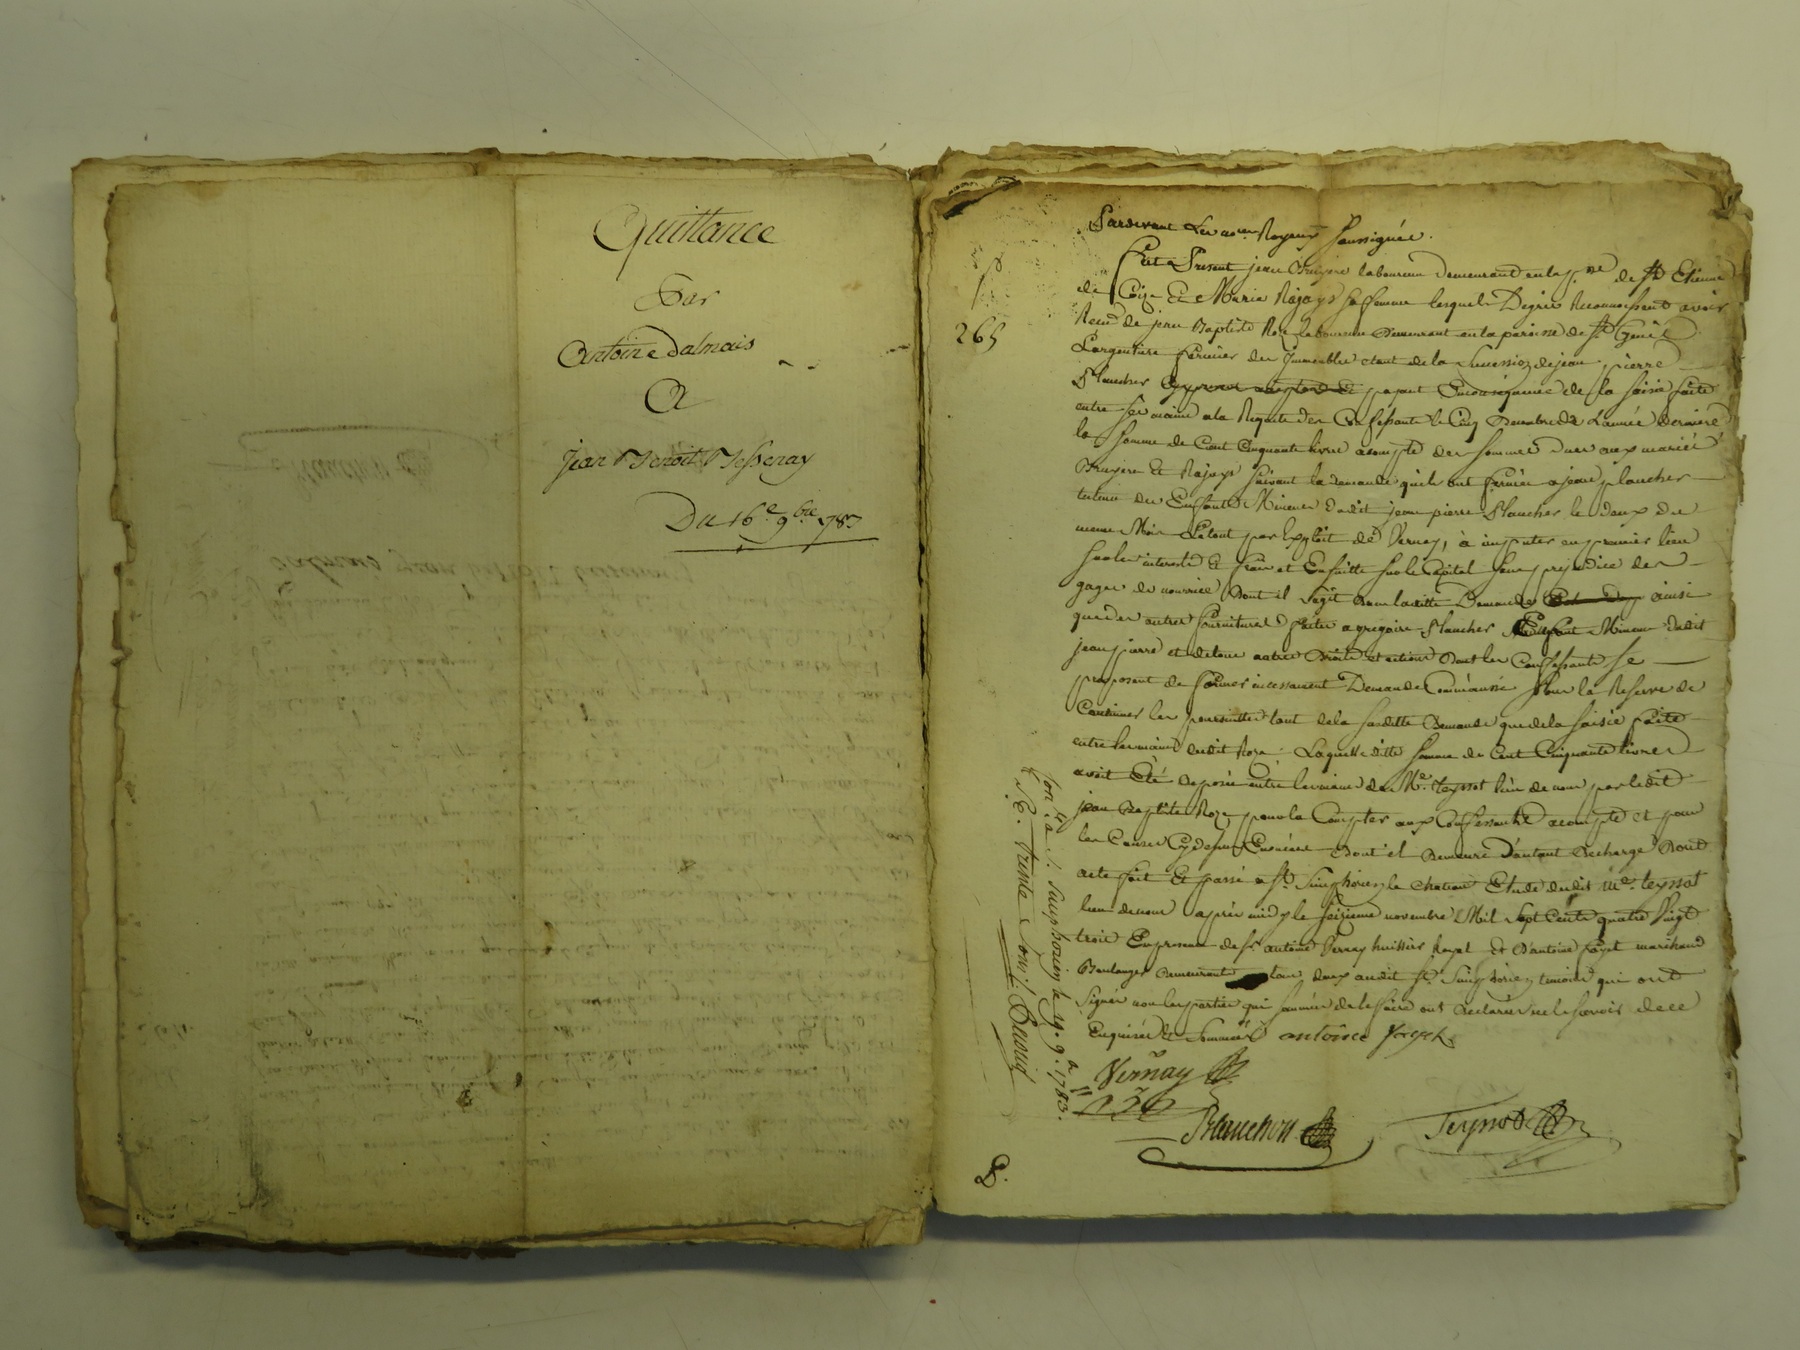 Quittance
Par
Antoine Dalmais
A
Jean Benoit Bessenay
Du 16.e 9.bre 1783
Pardevant Les no.res Royaux Soussignés.
265
fut Present jean Bruyere laboureur demeurant en la p.sse de St Etienne
de Coize Et Marie Rajays sa femme lesquels De gré Reconnoissent avoir
Receu de jean Baptiste Roze laboureur Demeurant en la paroisse de St Genist
Largentiere fermier des Immeubles etant de la Succession de jean pierre
Plancher payant En consequence de la saisie faite
entre ses mains a la Requete des Confessants le Cinq Decembre de L'année derniere
la Somme de Cent Cinquante livres acompte des Sommes dues aux mariés
Bruyere Et Rajays suivant la demande quils ont formée a jean plancher
tuteur des Enfants Mineurs dudit jean pierre Plancher le deux du
meme Mois Le tout par Exploit de Vernay, à imputer en premier lieu
sur les interets Et frais et Ensuitte sur le Capital sans prejudice des
gages de nourrice Dont il sagit Dans laditte Demande ainsi
que des autres fournitures faites a gregoire Plancher Enfant Mineur dudit
jean pierre et de tous autres Droits et actions Dont les Confessants se
proposent de former incessament Demande Comm'aussi sous la Reserve de
Continuer les poursuittes tant de la susditte Demande que de la saisie faite
entre les mains dudit Roze. Laquelle ditte Somme de Cent Cinquante livres
avoit Eté deposée entre les mains de M.e Teyssot l'un de nous par ledit
jean Baptiste Roze pour la Compter aux Confessants acompte et pour
les Causes Cy dessus Enoncées dont il Demeure D'autant Decharge Dont
acte fait Et passé a St. Simphorien le Chateau Etude dudit M.e Teyssot
l'un de nous après midy le seizieme novembre Mil Sept Cents quatre Vingt
trois En presence de S.r antoine Vernay huissier Royal Et D'antoine fayet marchand
Boulanger Demeurant tous deux audit St. Simphorien temoins qui ont
Signés non les parties qui sommées de le faire ont Declarés ne le savoir de ce
Enquises Et Sommées antoine fayet
Vernay
Blanchon
Teyssot
Con.lé a S. Simphorien le 19. 9.bre 1783.
R. trente sous.
P.